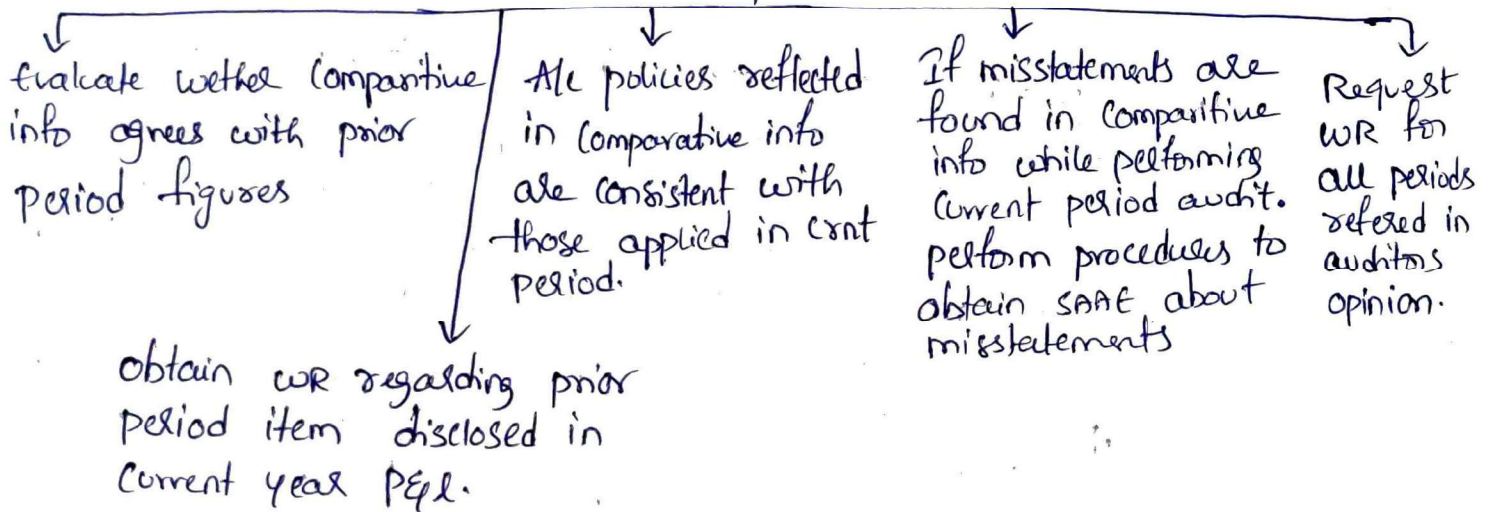 Evalcate wether Comparitive
info agrees with prior
Period figures
A/c policies reflected
in Comparative info
are Consistent with
those applied in crnt
period.
If misstatements are
found in Comparitive
info while performing
Current period audit.
perform procedures to
obtain SAAE about
misstatements
Request
WR for
all periods
refered in
auditors
opinion.
obtain WR regarding prior
period item disclosed in
Current year P&l.